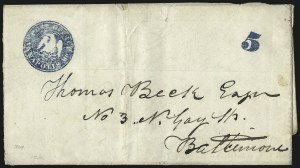 5
Thomas Beck Esqr
No 3 N. Gay St.
Baltimore